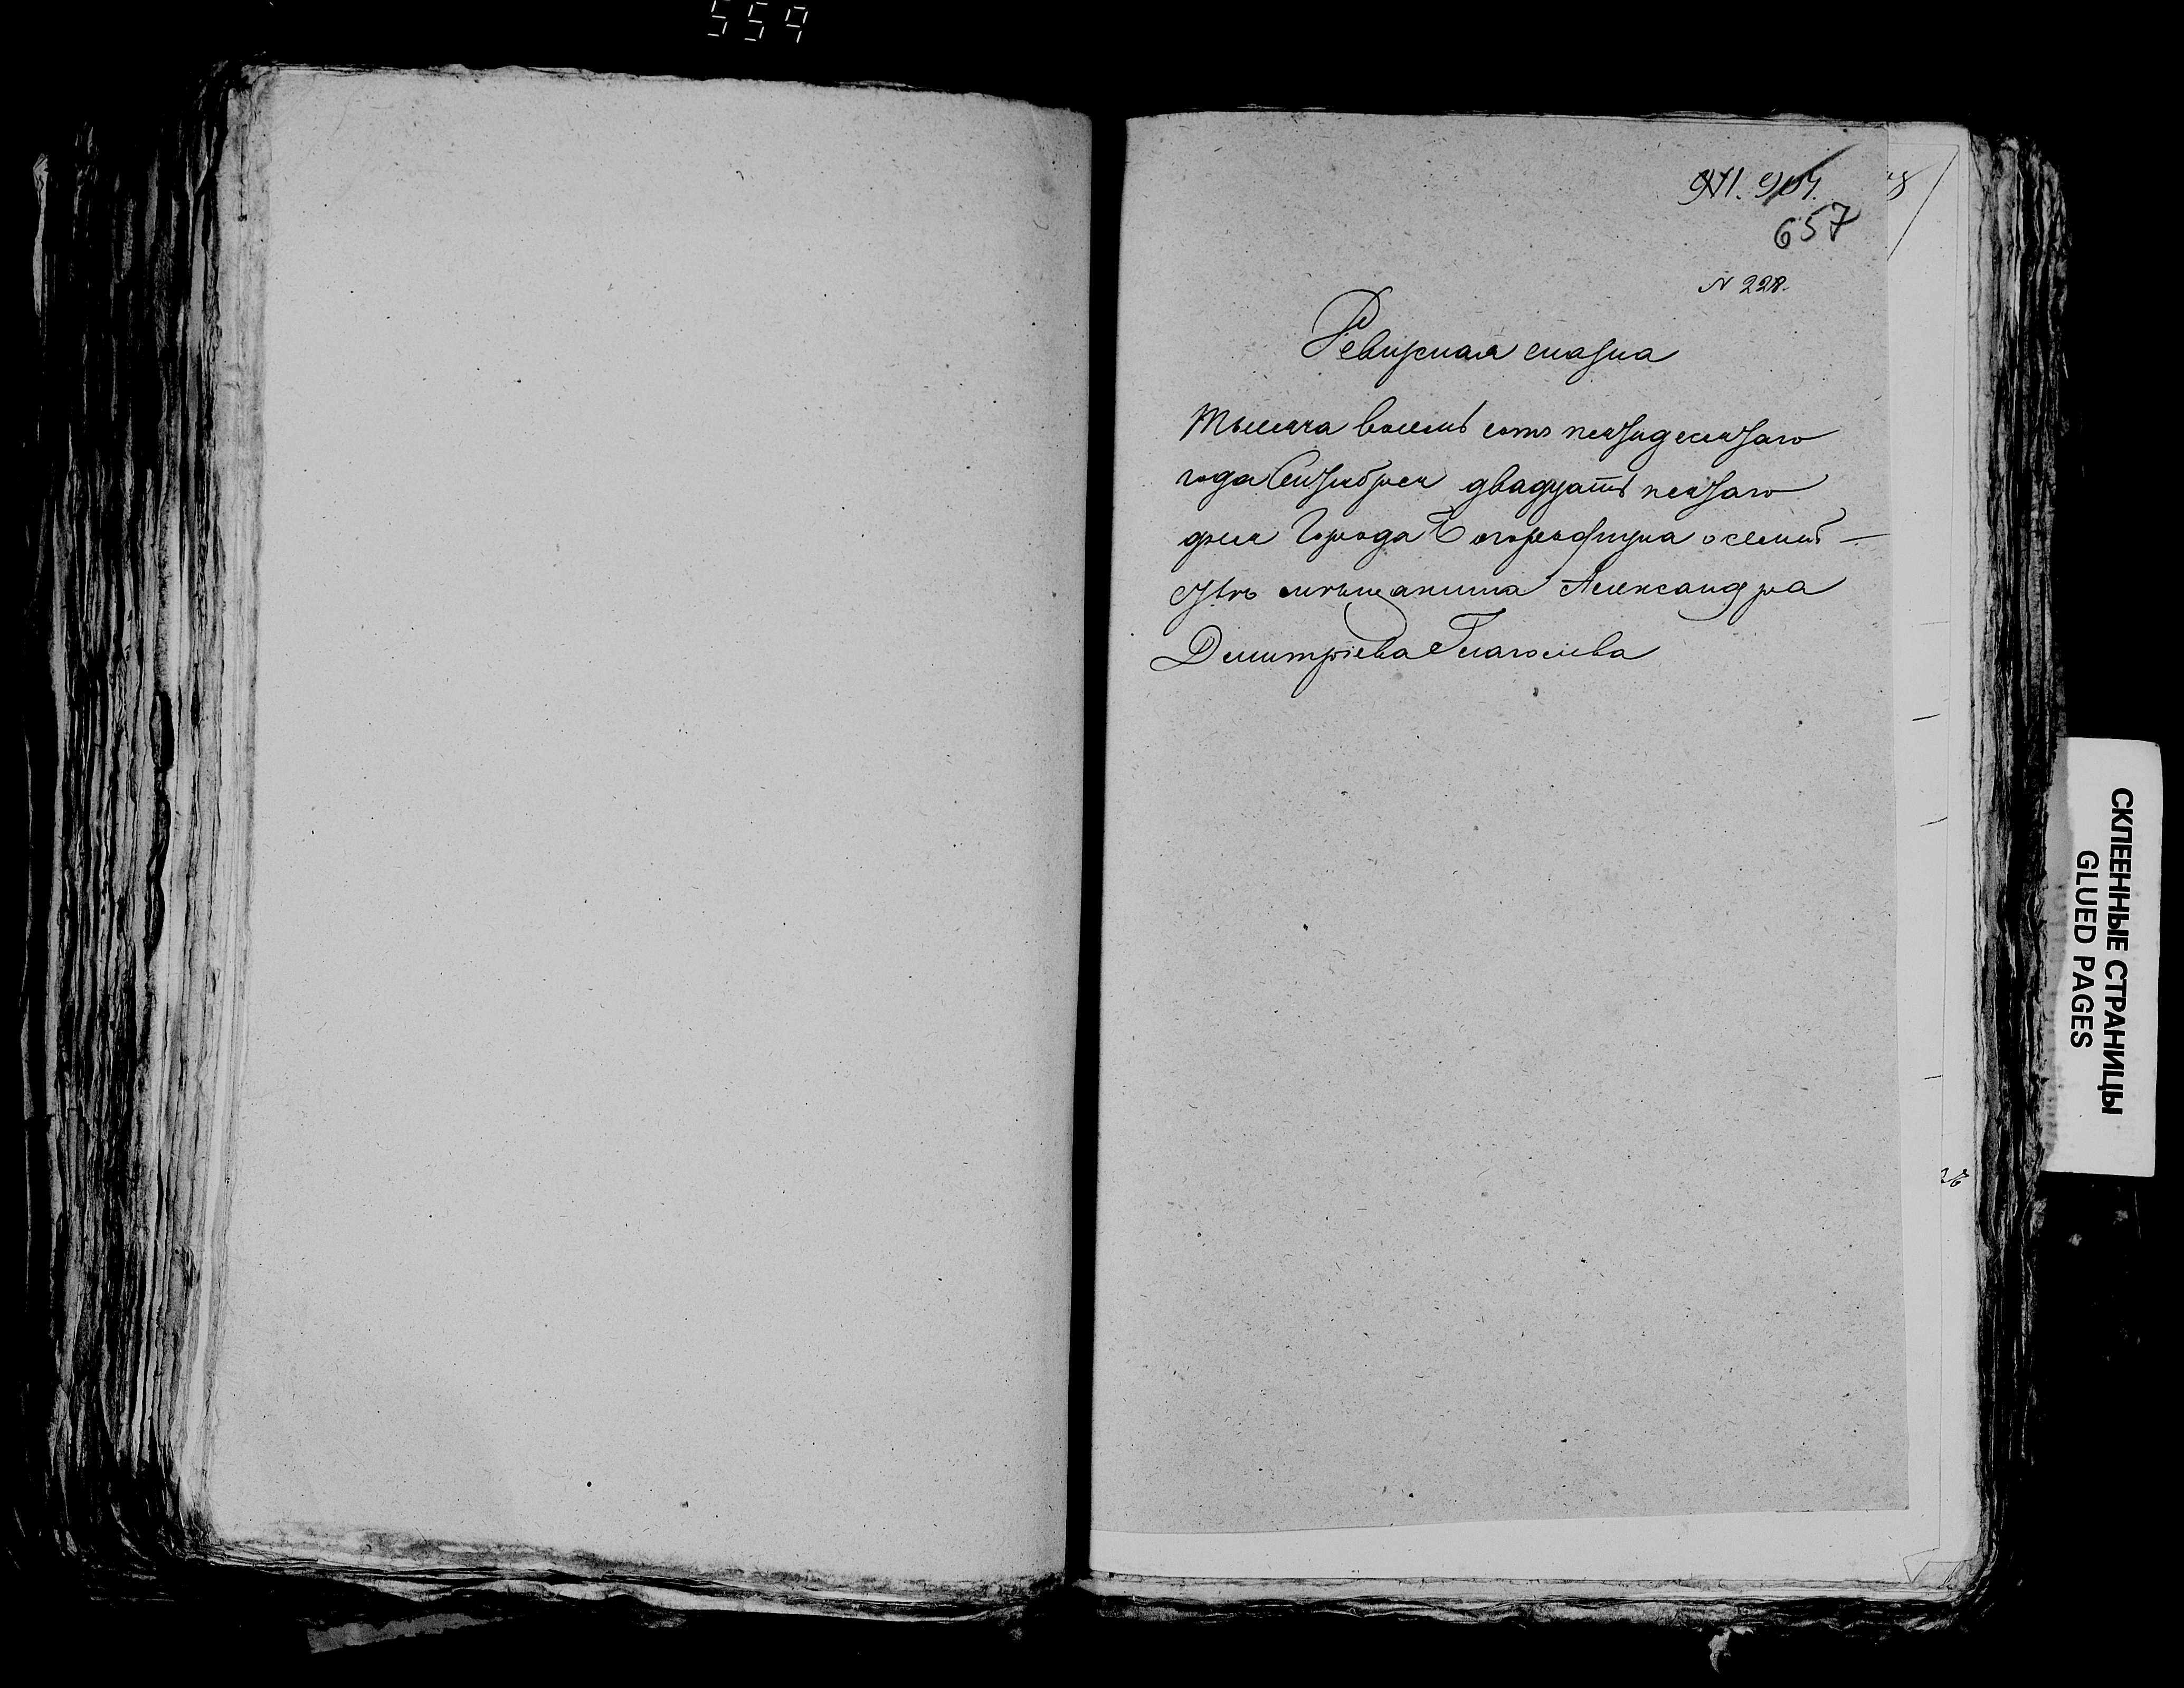 559
911. 904.
657
N 228.
Ревизская сказка
Тысяча восемь сотъ пятидесятаго
года Сентября двадцать пятаго
дня Города Богородицка о семей-
ствѣ мѣщанина Александра
Дмитріева Глаголева
СКЛЕЕННЫЕ СТРАНИЦЫ
GLUED PAGES